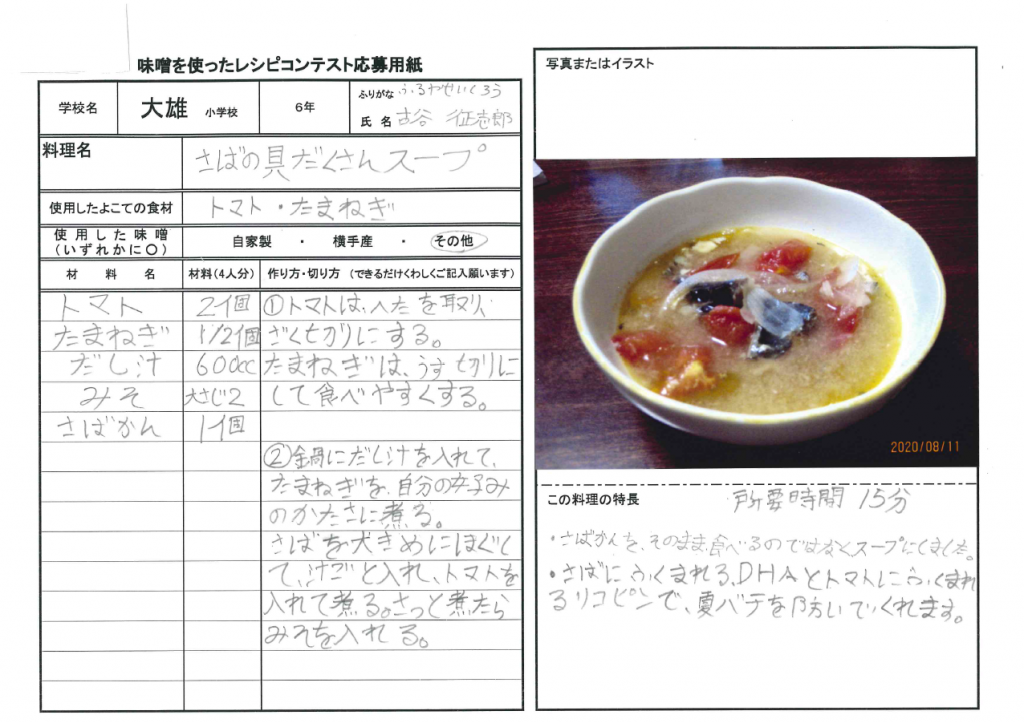 味噌を使ったレシピコンテスト応募用紙
学校名 大雄 小学校 6年
ふりがな ふるやせいくろう
氏名 古谷 征壱郎
料理名 さばの具だくさんスープ
使用したよこての食材 トマト・たまねぎ
使用した味噌(いずれかに〇) 自家製 ・ 横手産 ・ その他
材料名 材料(4人分) 作り方・切り方 (できるだけくわしくご記入願います)
トマト 2個 ①トマトは、へたを取り、
たまねぎ 1/2個 ざく切りにする。
だし汁 600cc たまねぎは、うす切りに
みそ 大さじ2 して食べやすくする。
さばかん 1個
②鍋にだし汁を入れて、
たまねぎを、自分の好み
のかたさに煮る。
さばを大きめにほぐし
て、汁ごと入れ、トマトを
入れて煮る。さっと煮たら
みそを入れる。
写真またはイラスト
2020/08/11
この料理の特長 所要時間 15分
・さばかんを、そのまま食べるのではなくスープにしました。
・さばにふくまれる、DHAとトマトにふくまれ
るリコピンで、夏バテを防いでくれます。